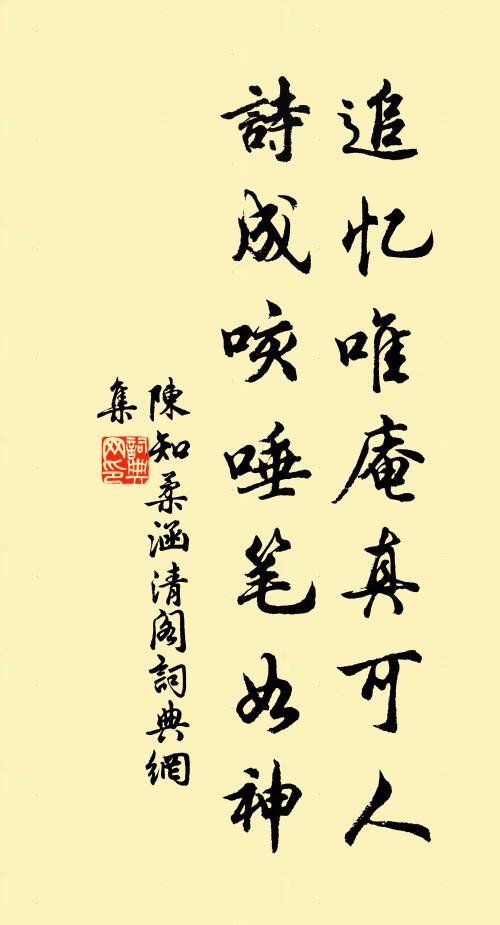 追忆唯庵真可人
詩成咳唾笔如神
陳知柔涵清閣詞典網
集
詞典網印